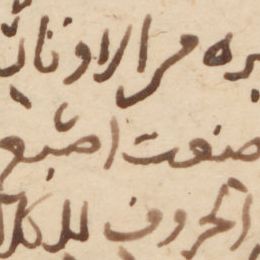 يره من الاوتار
صنعت اصبع
الحروف للدلا